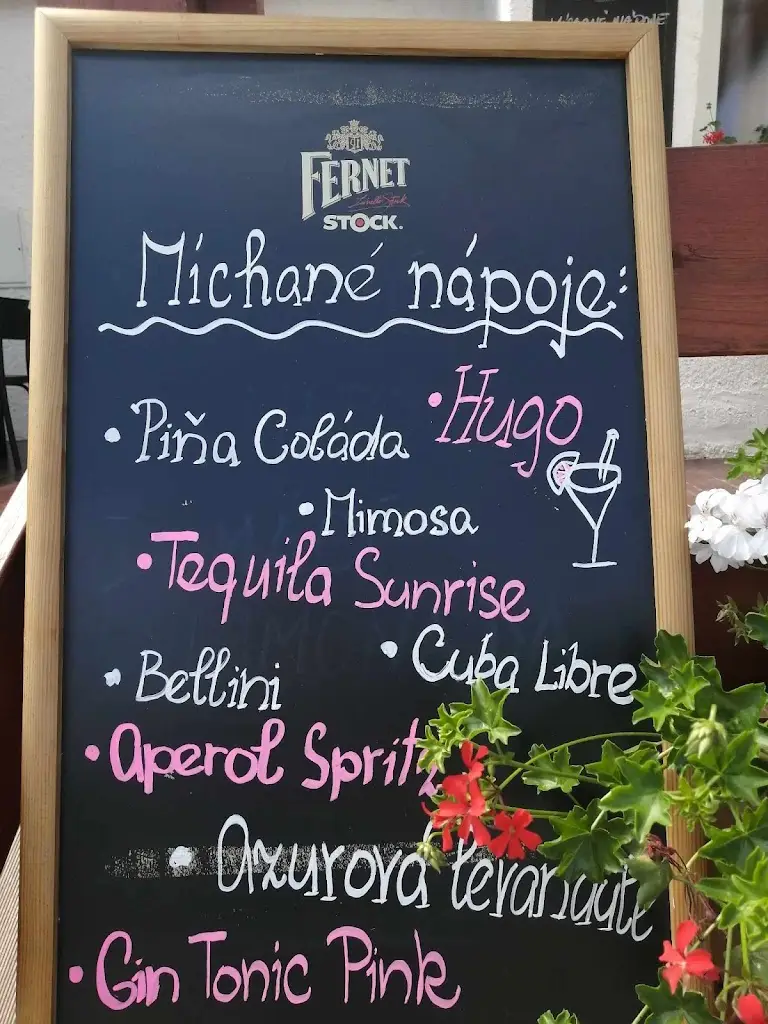 FERNET
STOCK.
Míchané nápoje:
• Piňa Coláda
• Hugo
• Mimosa
• Tequila Sunrise
• Cuba Libre
• Bellini
• Aperol Spritz
• Azurová
• Gin Tonic Pink